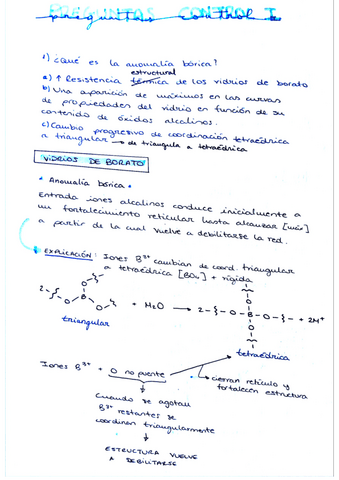 PREGUNTAS CONTROL I
1) ¿Qué es la anomalía bórica?
estructural
a) ↑ Resistencia térmica de los vidrios de borato
b) Una aparición de máximos en las curvas
de propiedades del vidrio en función de su
contenido de óxidos alcalinos.
c) Cambio progresivo de coordinación tetraédrica
a triangular → de triangula a tetraédrica
VIDRIOS DE BORATO
* Anomalía bórica *
Entrada iones alcalinos conduce inicialmente a
un fortalecimiento reticular hasta alcanzar [máx]
a partir de la cual vuelve a debilitarse la red.
* EXPLICACIÓN: Iones B³⁺ cambian de coord. triangular
a tetraédrica [BO₄] + rígida
O
B
O
O
+ M₂O → 2-ξ-O-B-O-ξ- + 2M⁺
O
O
triangular
tetraédrica
Iones B³⁺ + O no puente
cierran retículo y
fortalecen estructura
Cuando se agotan
B³⁺ restantes se
coordinan triangularmente
ESTRUCTURA VUELVE
A DEBILITARSE